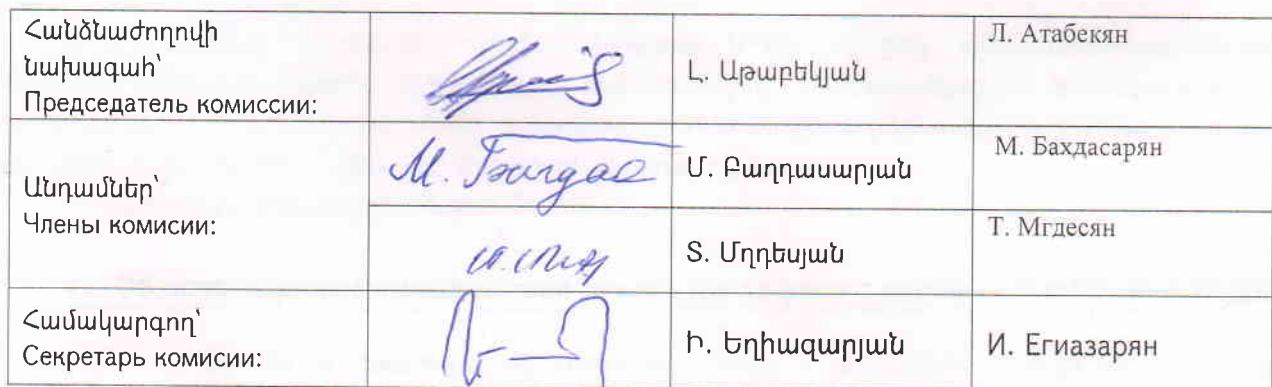 Հանձնաժողովի
նախագահ՝
Председатель комиссии:
Լ. Աթաբեկյան
Л. Атабекян
Անդամներ՝
Члены комисии:
М. Багдас
Մ. Բաղդասարյան
М. Бахдасарян
Տ. Մղդեսյան
Т. Мгдесян
Համակարգող՝
Секретарь комисии:
Ի. Եղիազարյան
И. Егиазарян